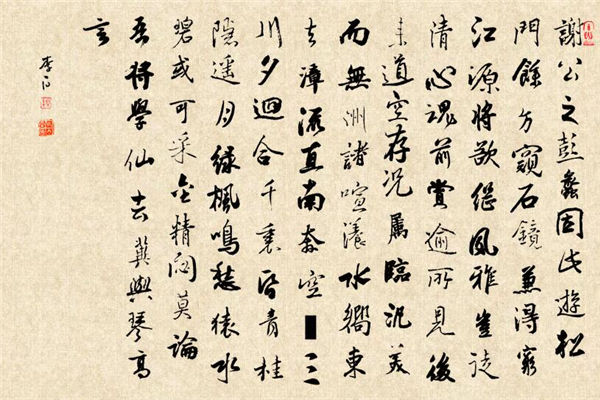 謝公之彭蠡因此遊松
門餘方窺石鏡兼得窮
江源將欲繼風雅豈徒
清心魂前賞逾所見後
來道空存況屬臨汎美
而無洲諸喧漾水嚮東
去漳流直南奔空■三
川夕迴合千裏昏青桂
隱遙月綠楓鳴愁猿水
碧或可采金精閟莫論
吾將學仙去冀與琴高
言
李白